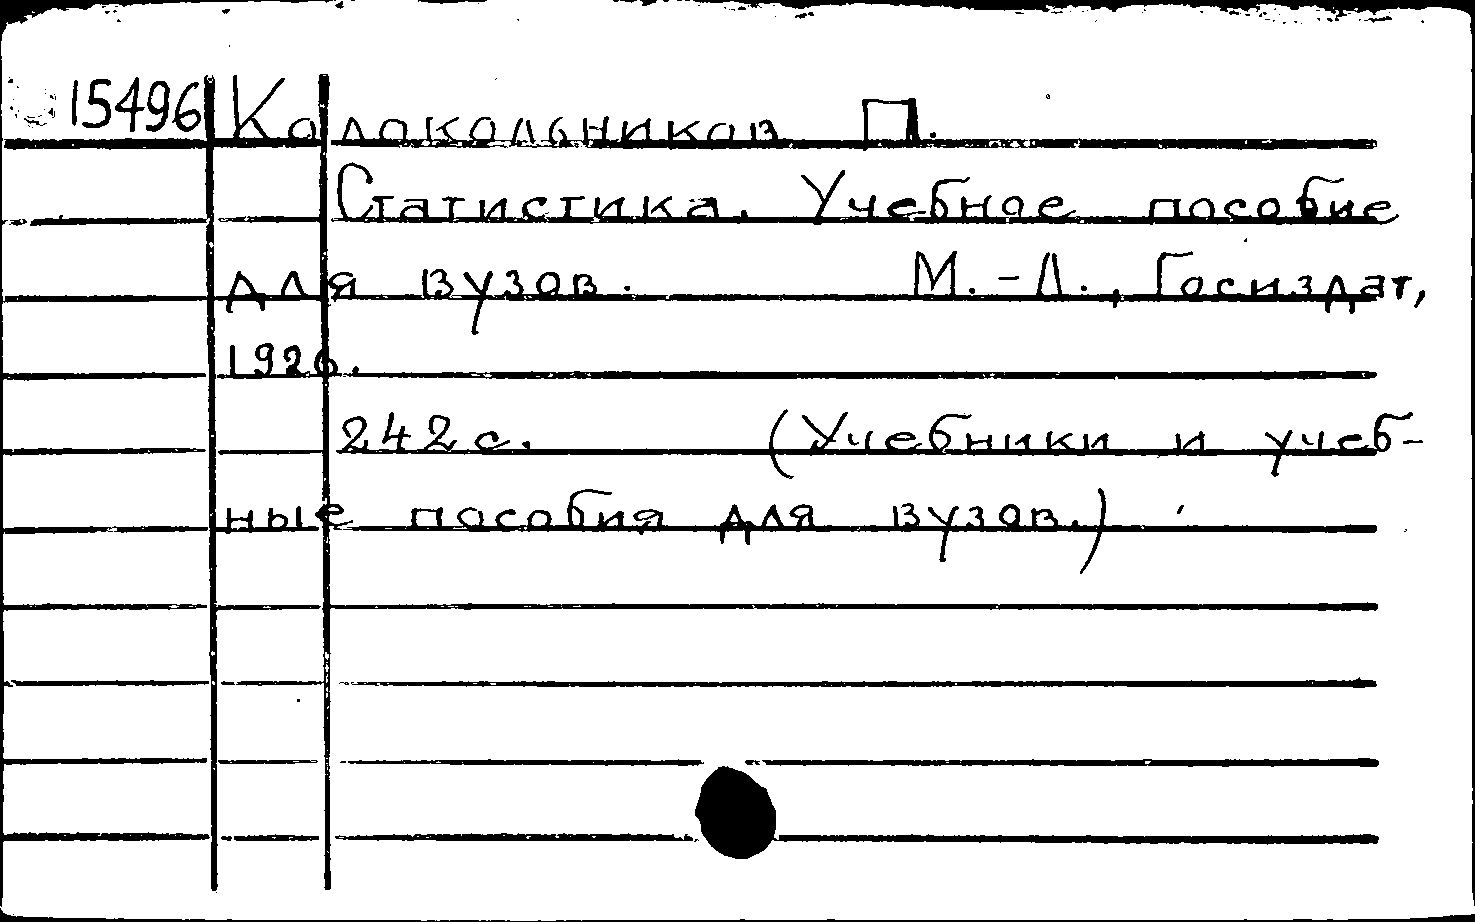 15496 Колокольников П.
Статистика. Учебное пособие
для вузов. М.-Л., Госиздат,
1926.
242 с. (Учебники и учеб-
ные пособия для вузов.)